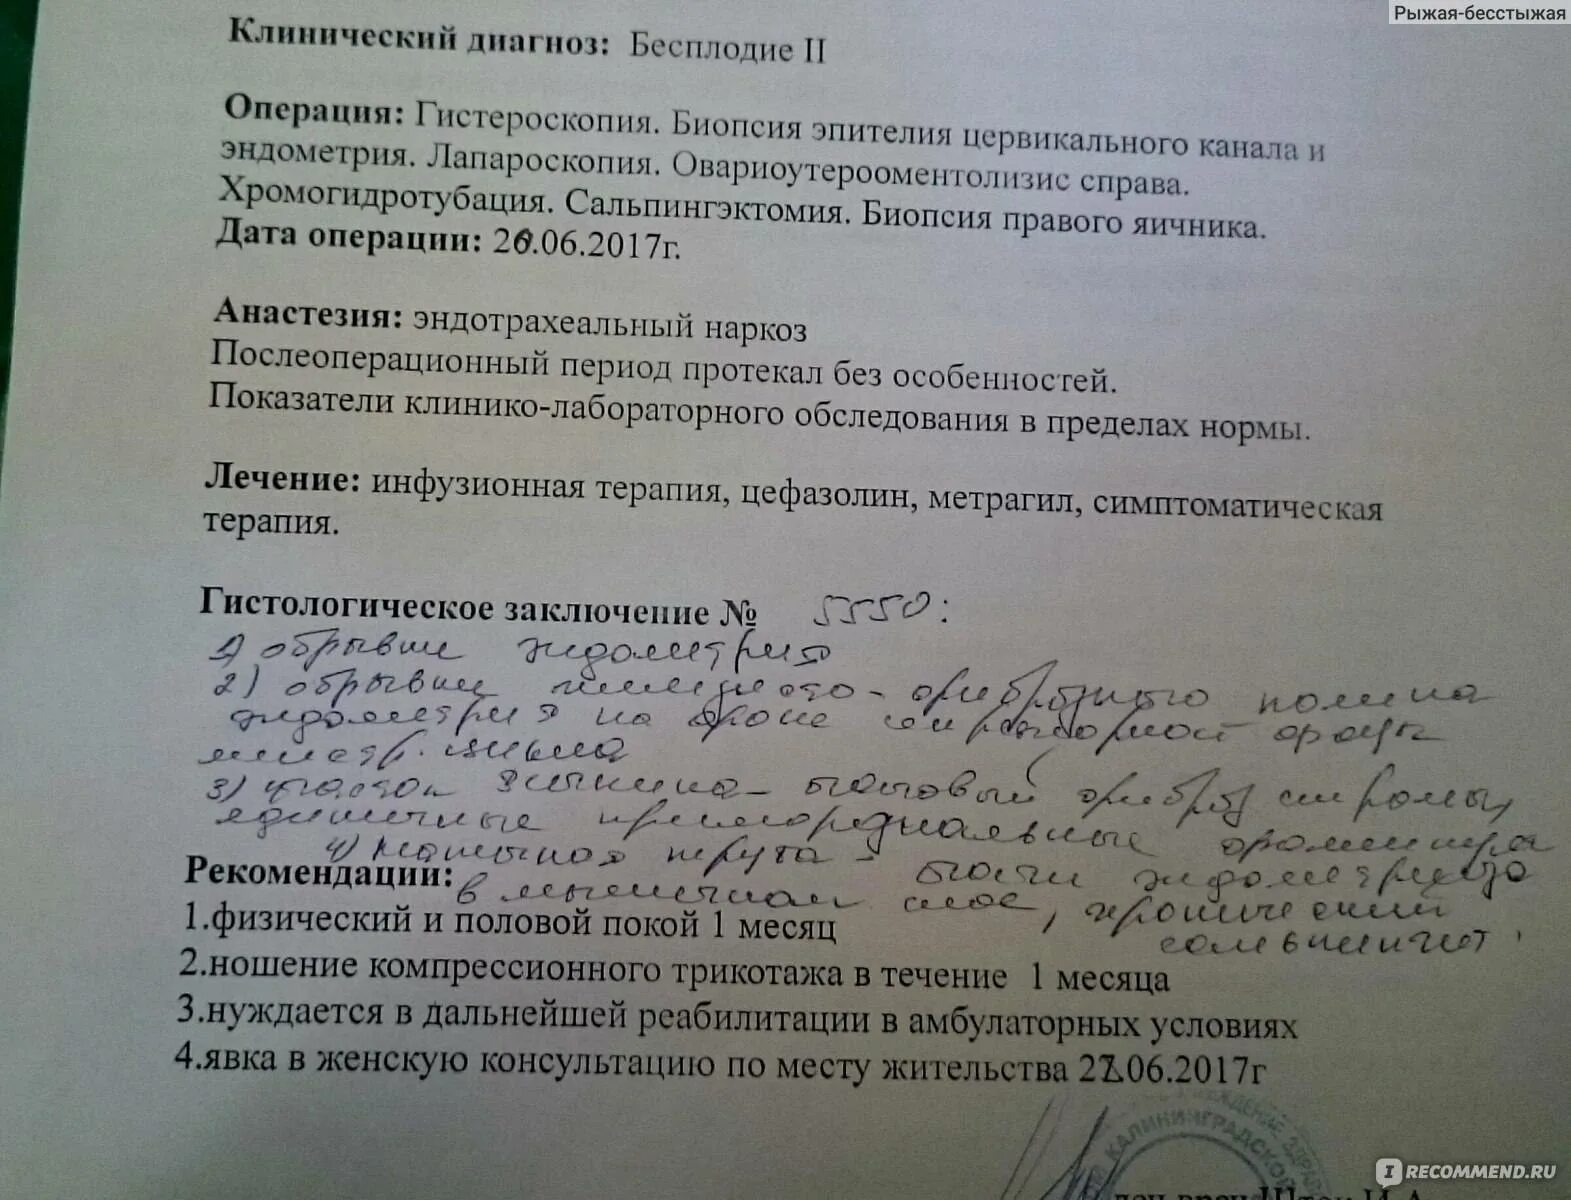 Рыжая-бесстыжая
Клинический диагноз: Бесплодие II
Операция: Гистероскопия. Биопсия эпителия цервикального канала и
эндометрия. Лапароскопия. Овариоутерооментолизис справа.
Хромогидротубация. Сальпингэктомия. Биопсия правого яичника.
Дата операции: 26.06.2017г.
Анастезия: эндотрахеальный наркоз
Послеоперационный период протекал без особенностей.
Показатели клинико-лабораторного обследования в пределах нормы.
Лечение: инфузионная терапия, цефазолин, метрагил, симптоматическая
терапия.
Гистологическое заключение № 5550:
1) обрывки эндометрия
2) обрывки железисто-фиброзного полипа
эндометрия на фоне пролиферации фазы
менстр. цикла
3) участок яичника - белочный фиброз стромы,
единичные примордиальные фолликулы
4) маточная труба - очаги эндометриоза
Рекомендации: в мышечном слое, хронический
1.физический и половой покой 1 месяц
сальпингит
2.ношение компрессионного трикотажа в течение 1 месяца
3.нуждается в дальнейшей реабилитации в амбулаторных условиях
4.явка в женскую консультацию по месту жительства 27.06.2017г
КАЛИНИНГРАДСКОЙ
IRECOMMEND.RU